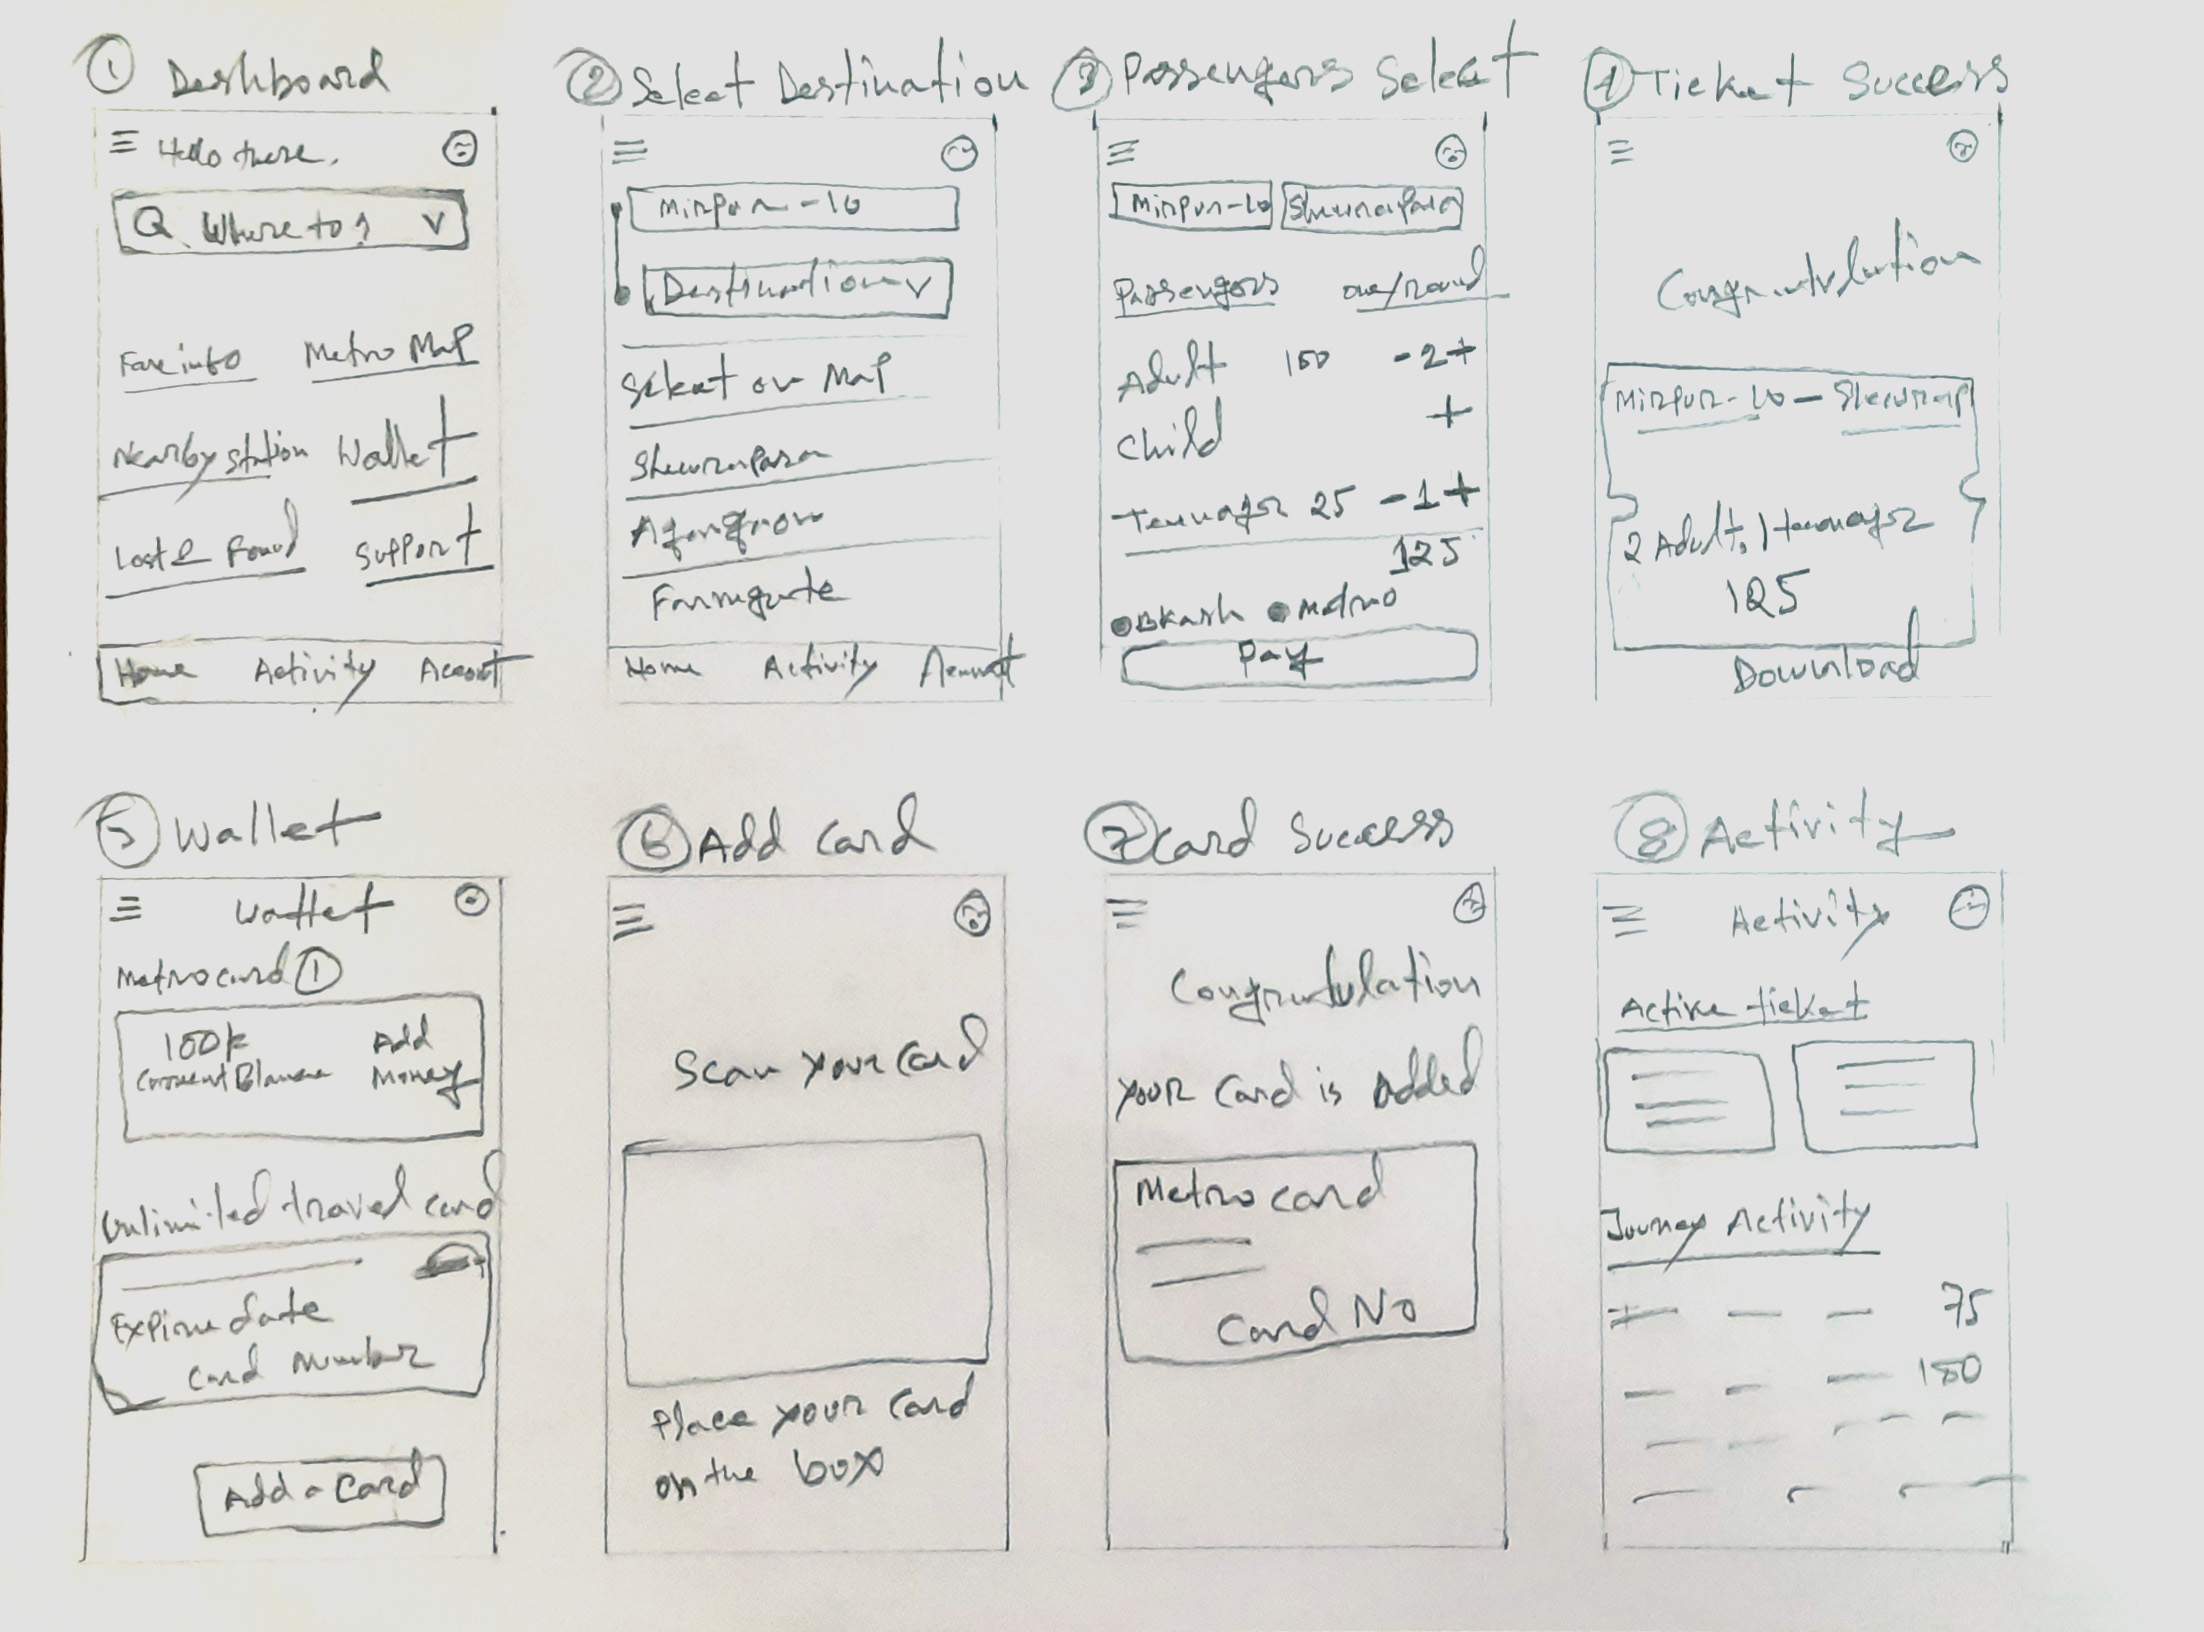 1 Dashboard
Hello there,
Q Where to? V
Fare info Metro Map
Nearby station Wallet
Lost & Found Support
Home Activity Account
2 Select Destination
Mirpur-10
Destination V
Select on Map
Shewrapara
Agargaon
Farmgate
Home Activity Account
3 Passengers Select
Mirpur-10 Shewrapara
Passengers one/round
Adult 100 - 2 +
Child +
Teenager 25 - 1 +
125
Bkash Metro
Pay
4 Ticket Success
Congratulation
Mirpur-10 - Shewrap
2 Adult, 1 teenager
125
Download
5 Wallet
Wallet
Metrocard 1
Add
Current Blance Money
Unlimited travel card
Expire date
Card Number
Add a Card
6 Add Card
Scan your Card
Place your Card
on the box
7 Card Success
Congratulation
your Card is Added
Metro card
Card No
8 Activity
Activity
Active ticket
Journey Activity
75